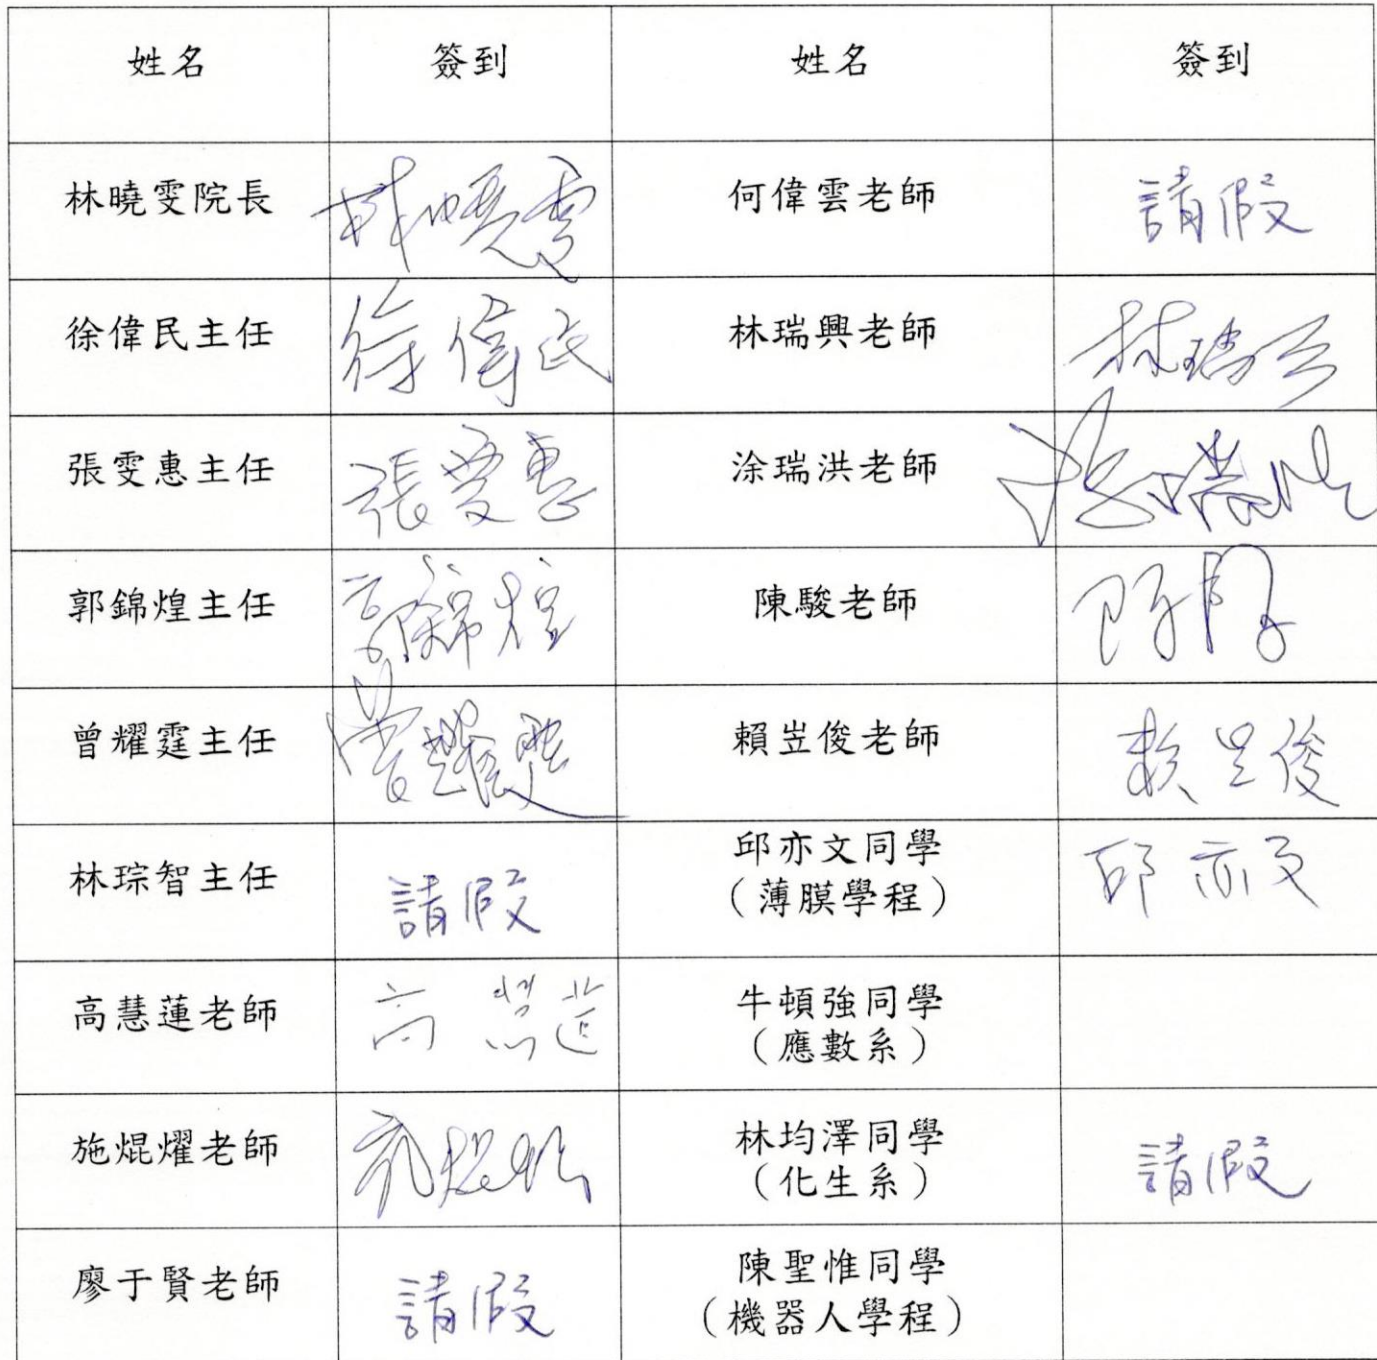 姓名 簽到 姓名 簽到
林曉雯院長 林曉雯 何偉雲老師 請假
徐偉民主任 徐偉民 林瑞興老師 林瑞興
張雯惠主任 張雯惠 涂瑞洪老師 涂瑞洪
郭錦煌主任 郭錦煌 陳駿老師
曾耀霆主任 曾耀霆 賴岦俊老師 賴岦俊
林琮智主任 請假 邱亦文同學 邱亦文
（薄膜學程）
高慧蓮老師 高慧蓮 牛頓強同學
（應數系）
施焜燿老師 施焜燿 林均澤同學 請假
（化生系）
廖于賢老師 請假 陳聖惟同學
（機器人學程）